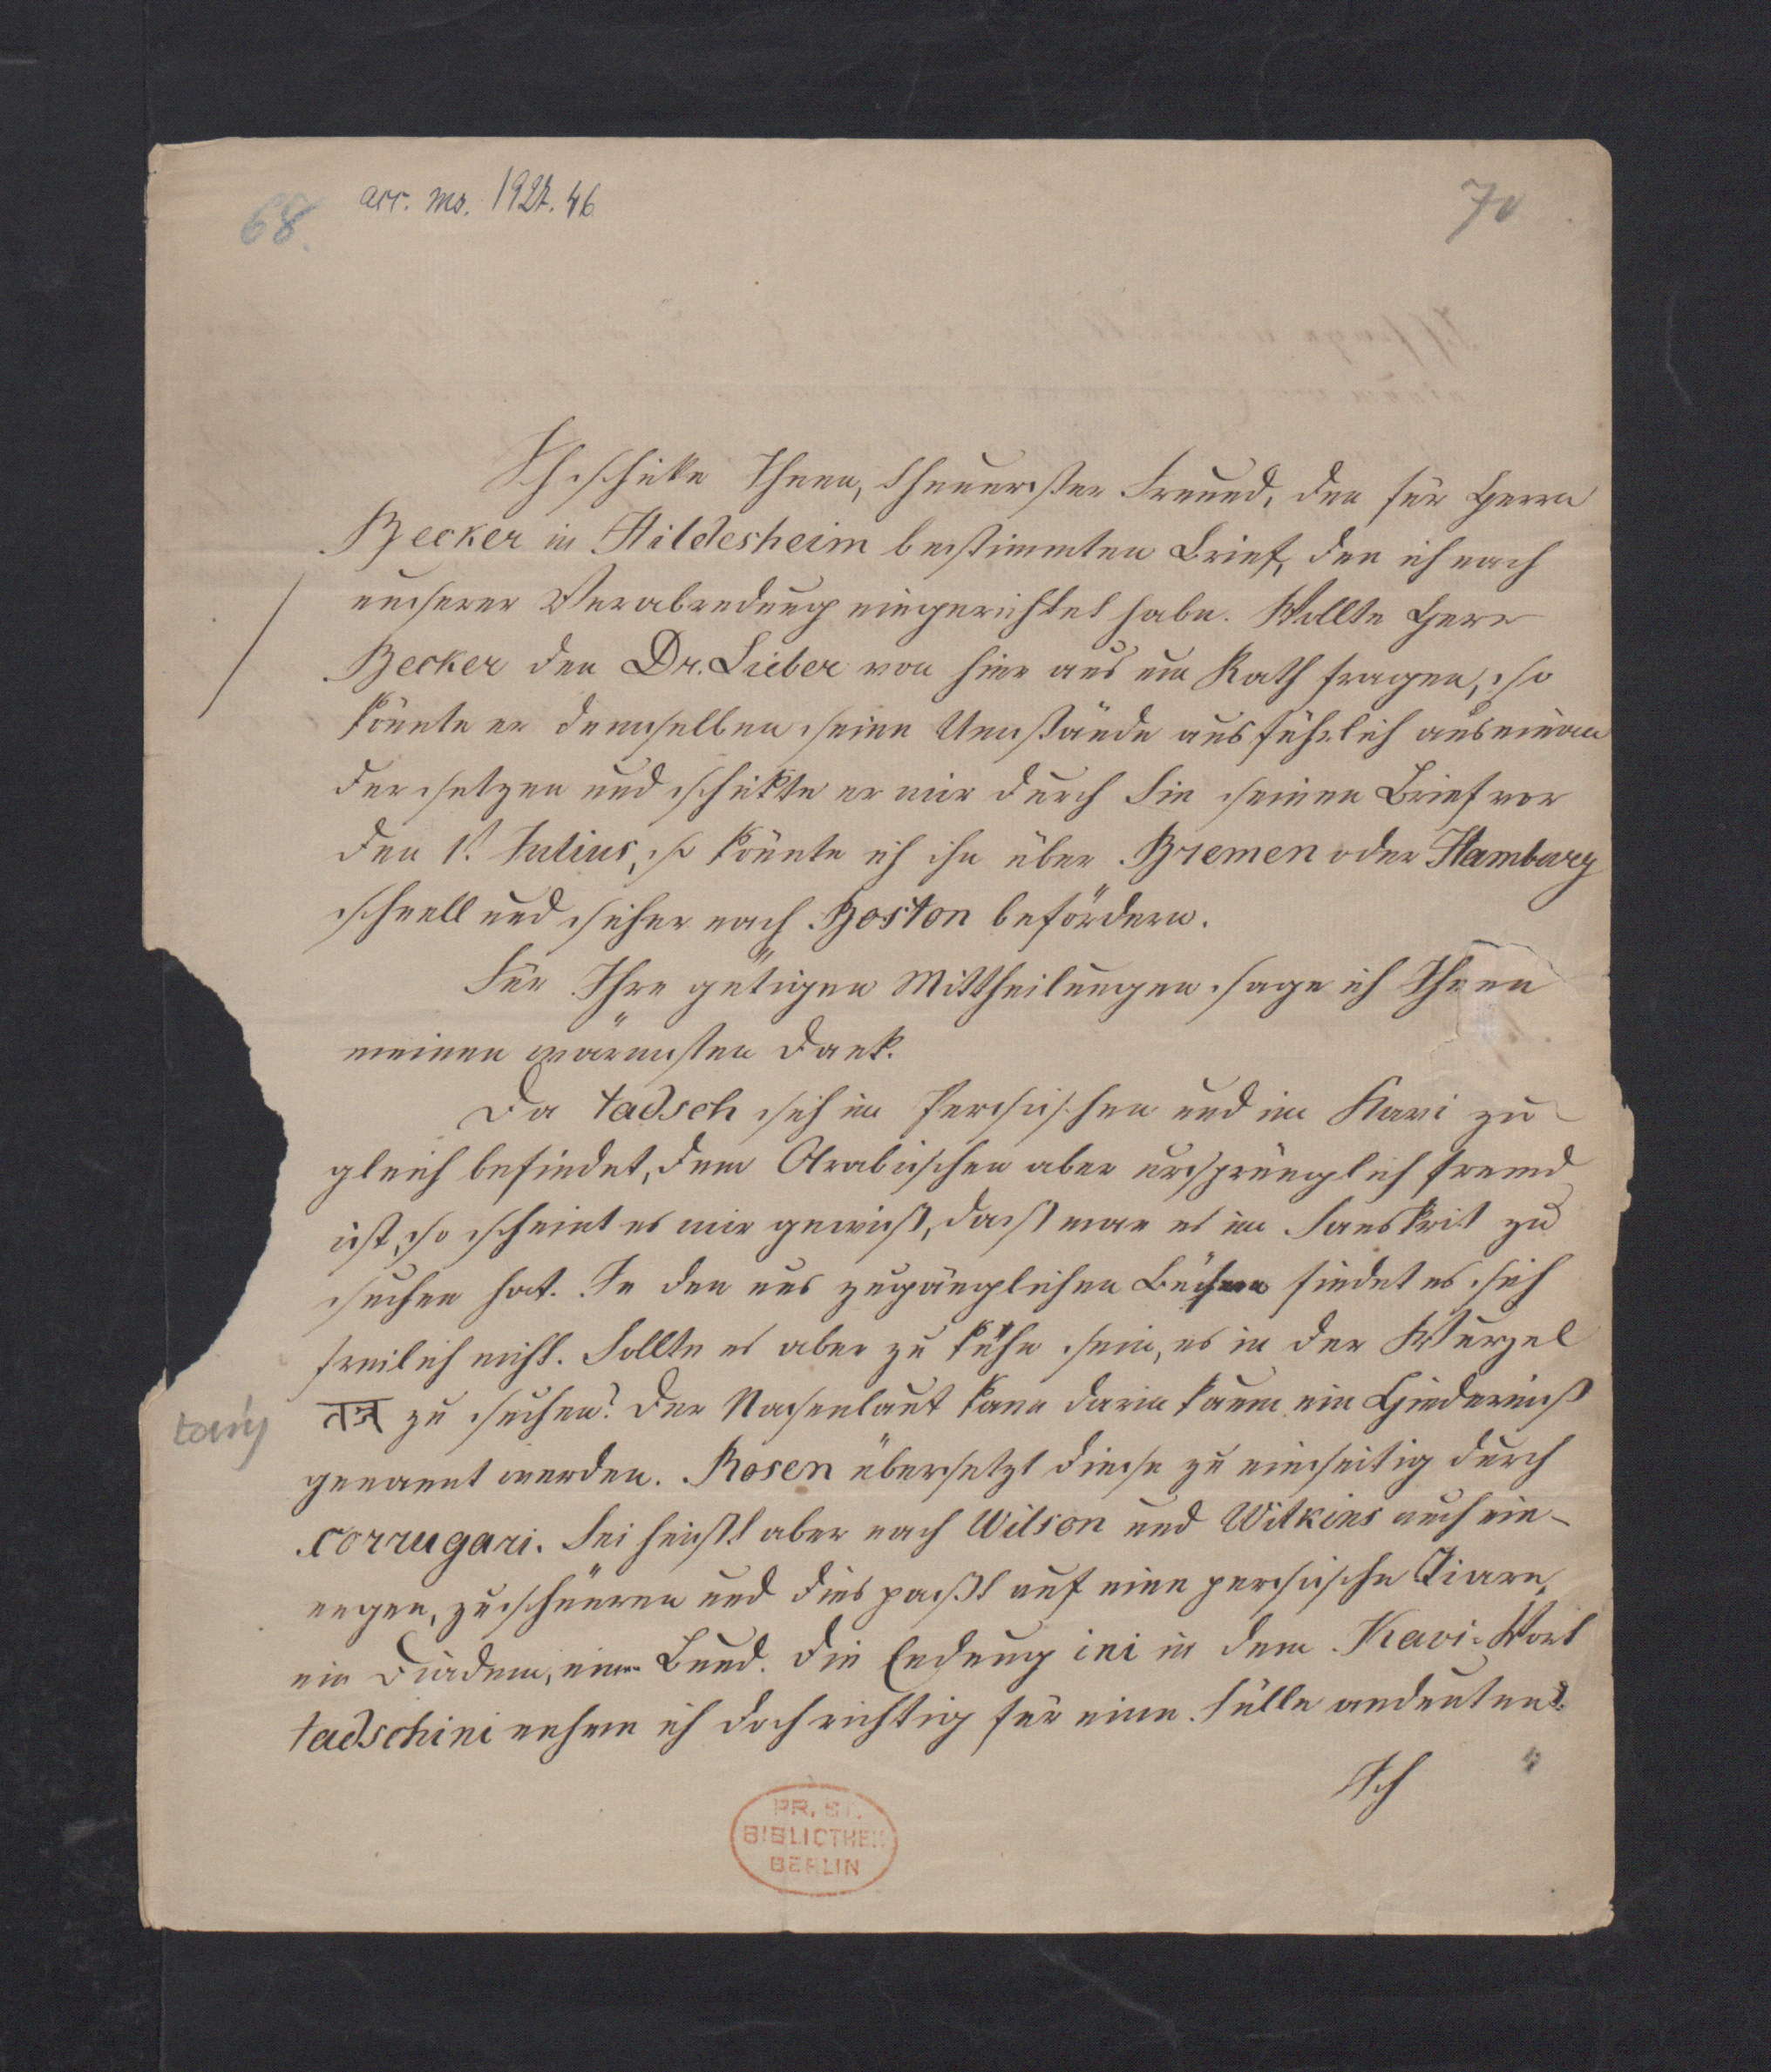 68.
acc. ms. 1927.46
70
Ich schicke Ihnen, theuerster Freund, den für Herrn
Becker in Hildesheim bestimmten Brief, den ich nach
unserer Verabredung eingerichtet habe. Wollte Herr
Becker den Dr. Lieber von hier aus um Rath fragen, so
könnte er demselben seine Umstände ausführlich auseinan
dersetzen und schickte er mir durch Sie seinen Brief vor
den 1t. Julius, so könnte ich ihn über Bremen oder Hamburg
schnell und sicher nach Boston befördern.
Für Ihre gütigen Mittheilungen sage ich Ihnen
meinen wärmsten Dank.
Da tadsch sich im Persischen und im Kavi zu
gleich befindet, dem Arabischen aber ursprünglich fremd
ist, so scheint es mir gewiß, daß man es im Sanskrit zu
suchen hat. In den uns zugänglichen Büchern findet es sich
freilich nicht. Sollte es aber zu kühn sein, es in der Wurzel
zu suchen? Der Nasenlaut kann darin kaum ein Hinderniß
genannt werden. Rosen übersetzt diese zu einseitig durch
corrugari. Sie heißt aber nach Wilson und Wilkins auch ein-
engen, zuschnüren und dies paßt auf eine persische Tiare,
ein Diadem, einen Bund. Die Endung ini in dem Kavi-Wort
tadschini nehme ich doch richtig für eine Fülle andeutend.
Ich
PR. ST.
BIBLIOTHEK
BERLIN